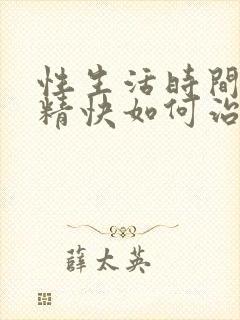 性生活時間
精快如何治
薛太英